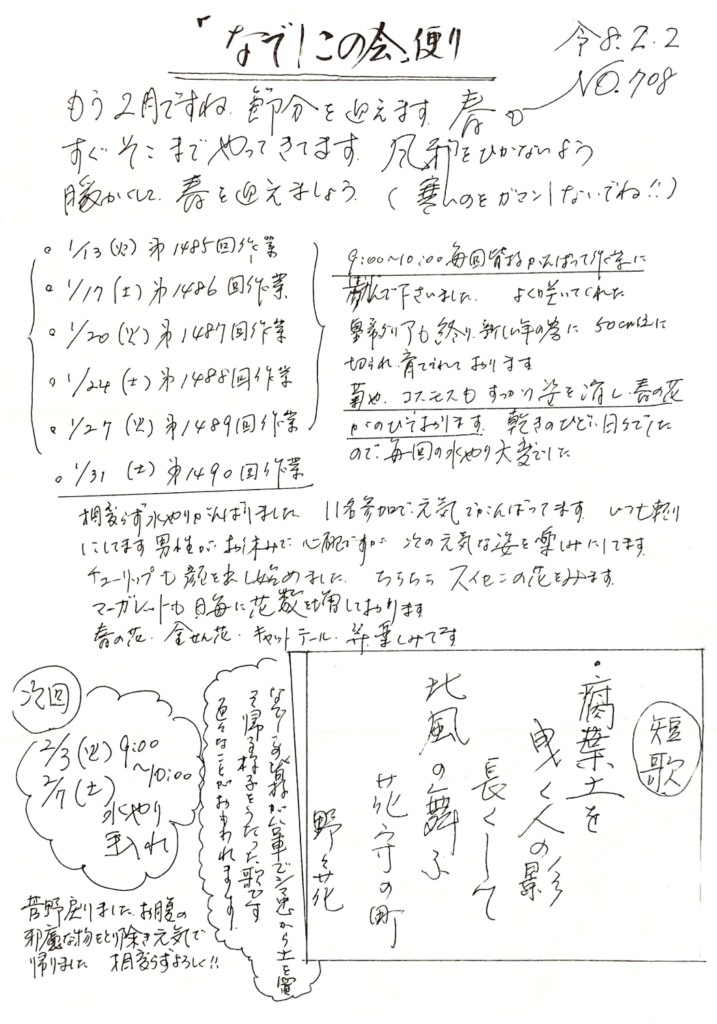 「なでしこの会」便り
令8.2.2
NO.708
もう2月ですね 節分を迎えます 春が
すぐそこまでやってきてます 風邪をひかないよう
暖かくして 春を迎えましょう (寒いのをガマンしないでね!!)
○ 1/13 (火) 第1485回作業
○ 1/17 (土) 第1486回作業
○ 1/20 (火) 第1487回作業
○ 1/24 (土) 第1488回作業
○ 1/27 (火) 第1489回作業
○ 1/31 (土) 第1490回作業
9:00~10:00 毎回皆様がんばって作業に
励んで下さいました よく咲いてくれた
皇帝ダリアも終り 新しい年の為に 50cm位に
切られ 育てられております
菊や コスモスも すっかり姿を消し 春の花
がのびております 乾きのひどい日々でした
ので 毎回の水やり大変でした
相変らず水やりがんばりました 11名参加で元気でがんばってます いつも頼り
にしてます男性が お休みで 心配ですが 次の元気な姿を楽しみにしてます
チューリップも 顔を出し始めました ちらちら スイセンの花をみます
マーガレットも 日毎に花数を増しております
春の花 金せん花・キャットテール 等 楽しみです
次回
2/3 (火) 9:00
~10:00
2/7 (土)
水やり
手入れ
苔野戻りました お腹の
邪魔な物をとり除き元気で
帰りました 相変らずよろしく!!
なでしこの皆様が台車で から土を
て帰る様子をうたった歌です
色々なことがおもわれます
短歌
・腐葉土を
曳く人の影
長くして
北風の舞ふ
花守の町
野々花